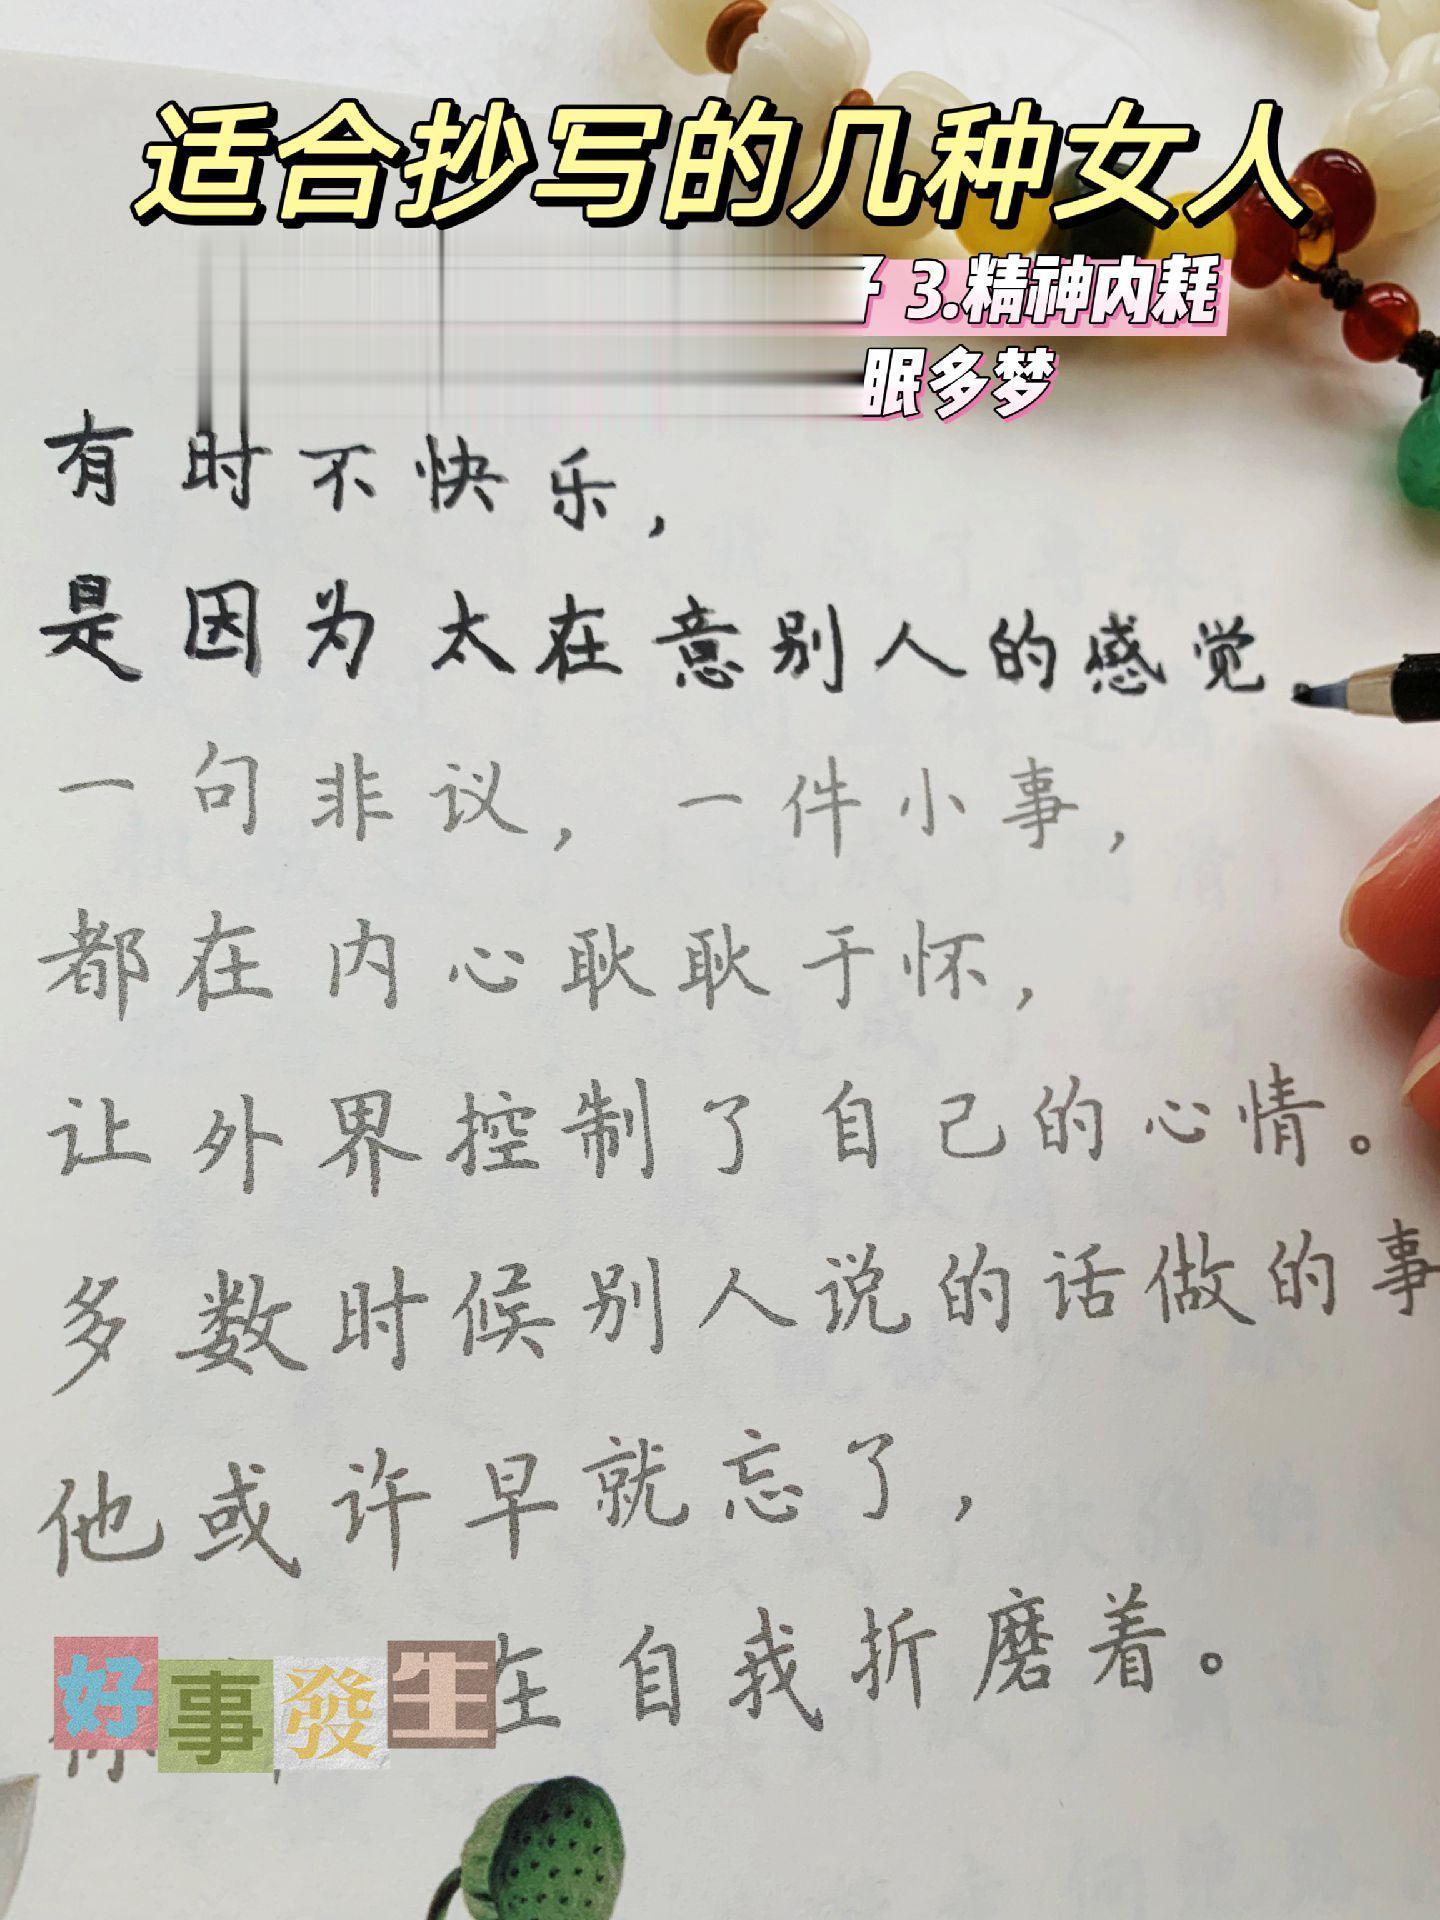 适合抄写的几种女人
3.精神内耗
眠多梦
有时不快乐，
是因为太在意别人的感觉。
一句非议，一件小事，
都在内心耿耿于怀，
让外界控制了自己的心情。
多数时候别人说的话做的事
他或许早就忘了，
在自我折磨着。
好事發生